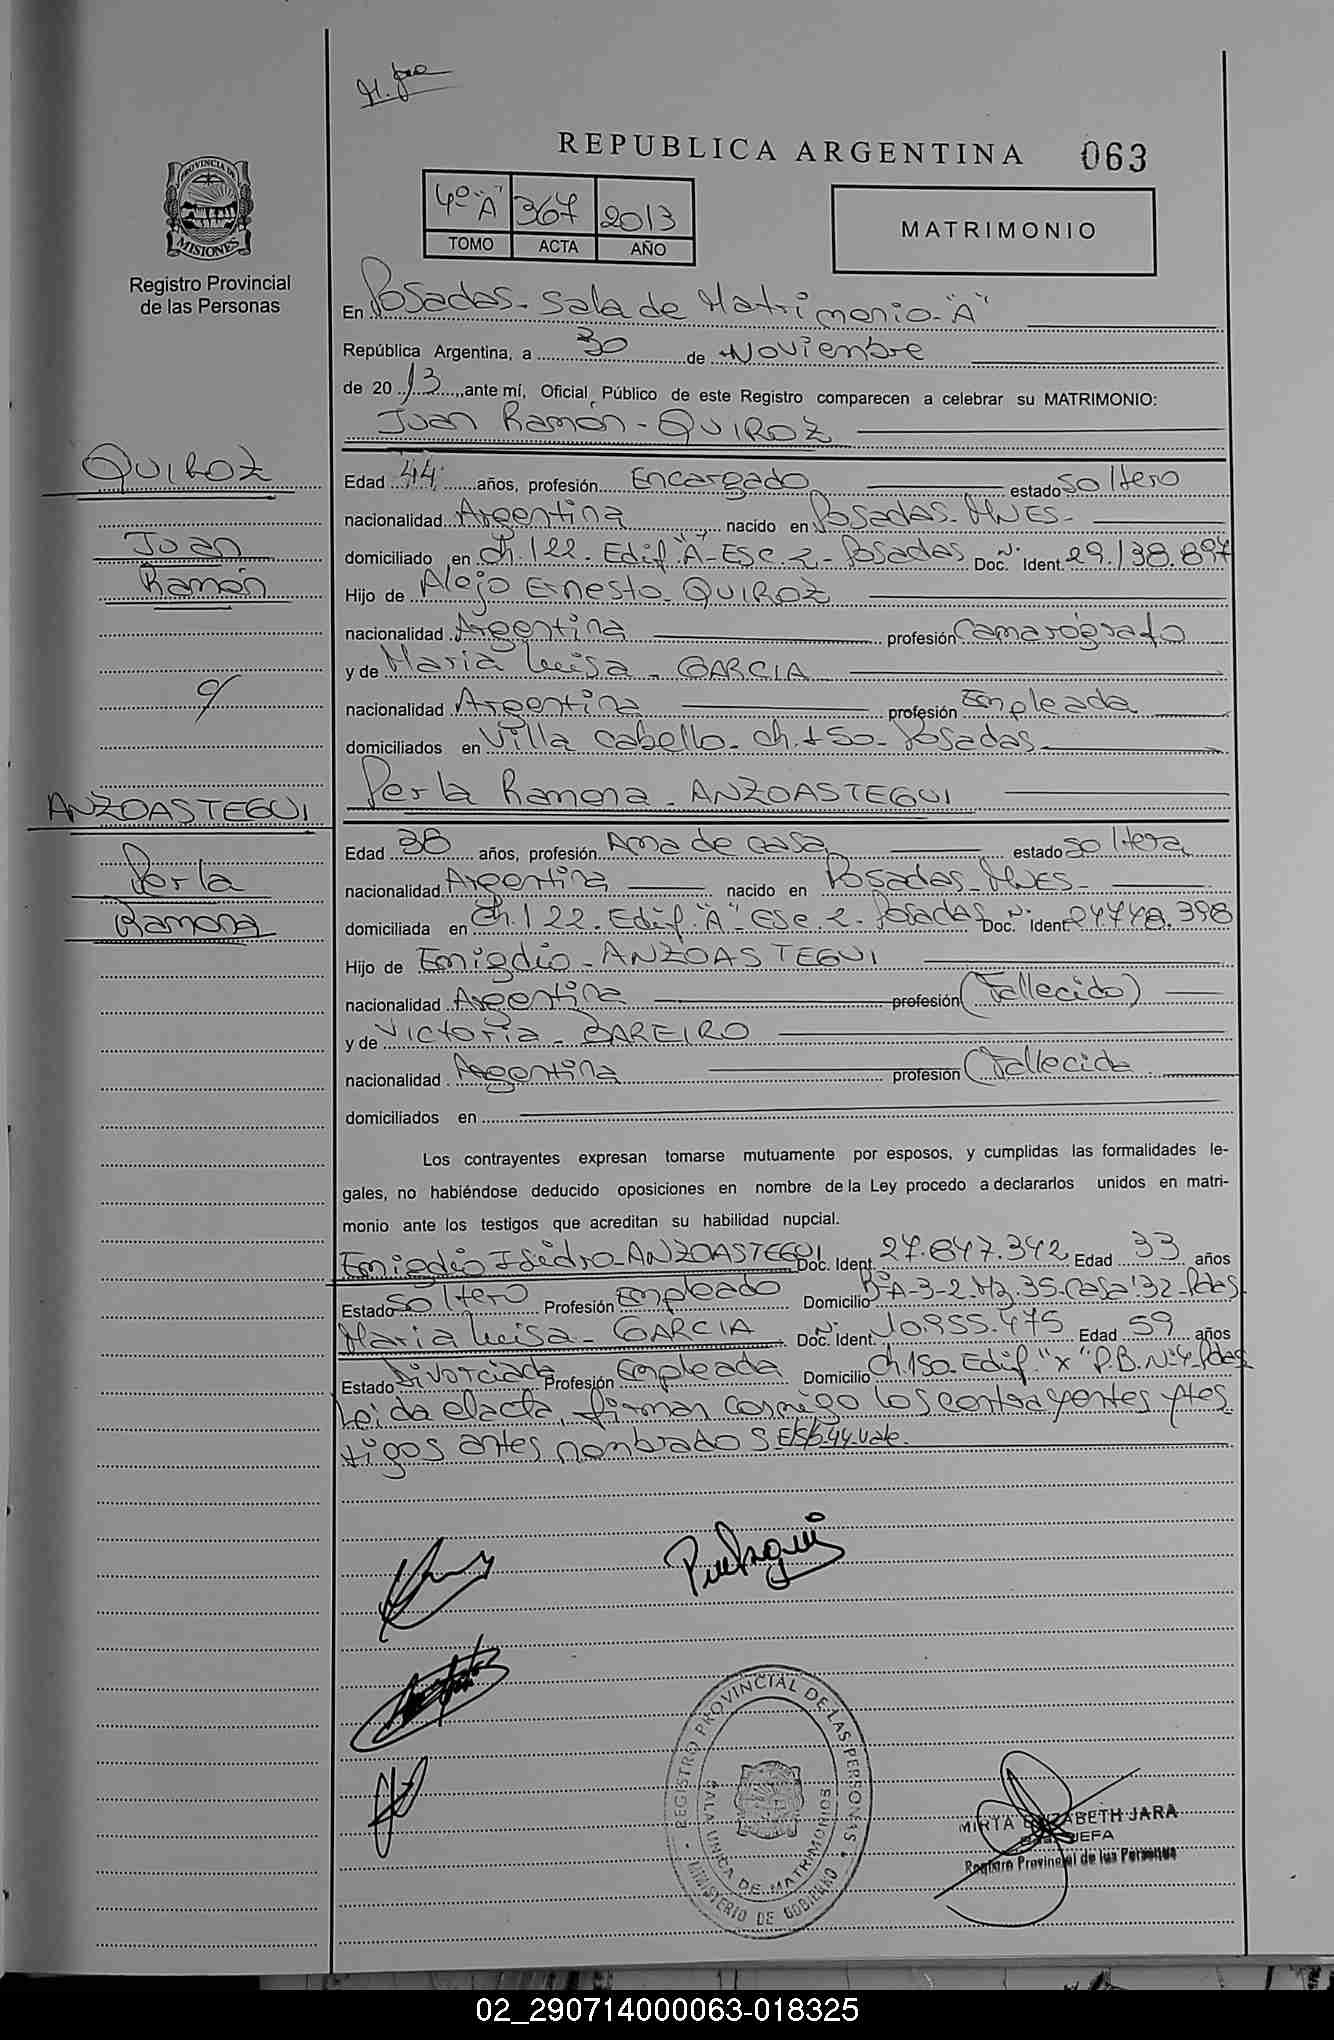 REPUBLICA ARGENTINA 063
PROVINCIA DE
MISIONES
Registro Provincial
de las Personas
4º "A" 367 2013
TOMO ACTA AÑO
MATRIMONIO
En Posadas - Sala de Matrimonio - "A"
República Argentina, a 30 de Noviembre
de 2013, ante mí, Oficial Público de este Registro comparecen a celebrar su MATRIMONIO:
Juan Ramón - QUIROZ
QUIROZ
Juan
Ramón
c/
Edad 44 años, profesión Encargado estado soltero
nacionalidad Argentina nacido en Posadas - MNES -
domiciliado en Ch. 122 - Edif. "A" - Esc. 2 - Posadas Doc. Nº Ident. 29.138.897
Hijo de Alejo Ernesto - QUIROZ
nacionalidad Argentina profesión Camarógrafo
y de Maria Luisa - GARCIA
nacionalidad Argentina profesión Empleada
domiciliados en Villa Cabello - Ch. 150 - Posadas -
Perla Ramona - ANZOASTEGUI
ANZOASTEGUI
Perla
Ramona
Edad 38 años, profesión Ama de casa estado soltera
nacionalidad Argentina nacido en Posadas - MNES -
domiciliada en Ch. 122 - Edif. "A" - Esc. 2 - Posadas Doc. Nº Ident. 24.748.398
Hijo de Emigdio - ANZOASTEGUI
nacionalidad Argentina profesión (Fallecido)
y de Victoria - BAREIRO
nacionalidad Argentina profesión (Fallecida
domiciliados en
Los contrayentes expresan tomarse mutuamente por esposos, y cumplidas las formalidades le-
gales, no habiéndose deducido oposiciones en nombre de la Ley procedo a declararlos unidos en matri-
monio ante los testigos que acreditan su habilidad nupcial.
Emigdio Isidro - ANZOASTEGUI Doc. Ident. 27.647.342 Edad 33 años
Estado soltero Profesión Empleado Domicilio Bº A-3-2 - Mz. 35 - Casa: 32 - Pdas
Maria Luisa - GARCIA Doc. Nº Ident. 10.955.475 Edad 59 años
Estado Divorciada Profesión Empleada Domicilio Ch. 150 - Edif. "X" P.B. Nº 4 - Pdas
Leida el acta, firman conmigo los contrayentes y tes
tigos antes nombrados E/sb. 44. vale.
REGISTRO PROVINCIAL DE LAS PERSONAS
SALA UNICA DE MATRIMONIOS
MINISTERIO DE GOBIERNO
MIRTA ELIZABETH JARA
JEFA
Registro Provincial de las Personas
02_290714000063-018325